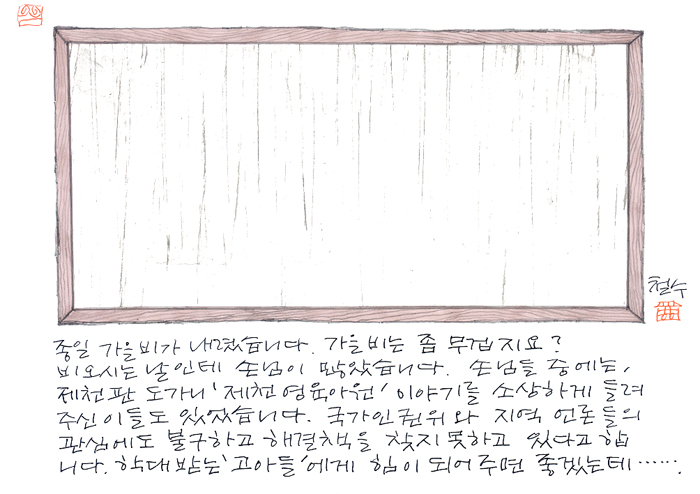 철수
종일 가을비가 내렸습니다. 가을비는 좀 무겁지요?
비오시는 날인데 손님이 많았습니다. 손님들 중에는,
제천판 도가니 '제천영육아원' 이야기를 소상하게 들려
주신 이들도 있었습니다. 국가인권위와 지역 언론들의
관심에도 불구하고 해결책을 찾지 못하고 있다고 합
니다. 학대받는 '고아들'에게 힘이 되어주면 좋겠는데…….